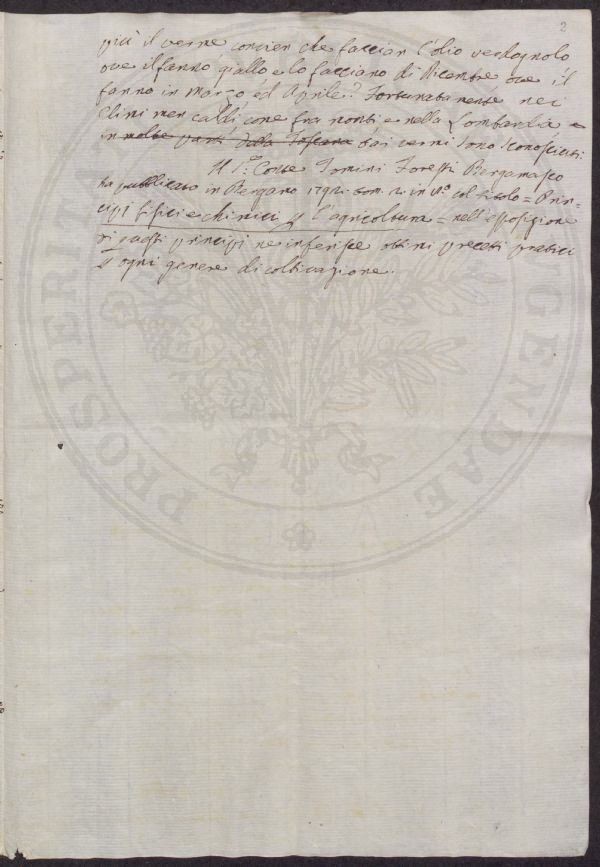 2
più il verme convien che faccian l'olio verdognolo
ove il fanno giallo e lo facciano di Dicembre ove il
fanno in Marzo ed Aprile? Fortunatamente nei
Climi men caldi come fra monti e nella Lombardia e
in molte parti della Toscana tai vermi sono sconosciuti.
Il S.r Conte Tomini Foresti Bergamasco
ha pubblicato in Bergamo 1792. tom. 2. in 8.° col titolo = Prin-
cipj fisici e chimici p l'agricoltura = nell'esposizione
di questi principj ne inferisce ottimi precetti pratici
p ogni genere di coltivazione.
PROSPERITATI AUGENDAE